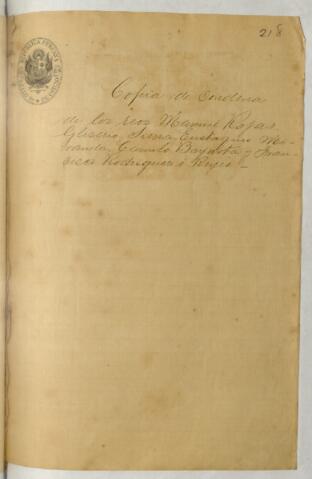 218
Copia de Condena
de los reos Manuel Rojas
Sierra Eustaquio Mi-
randa, Camilo Bayesta y Fran-
cisco Rodriguez i Rujio